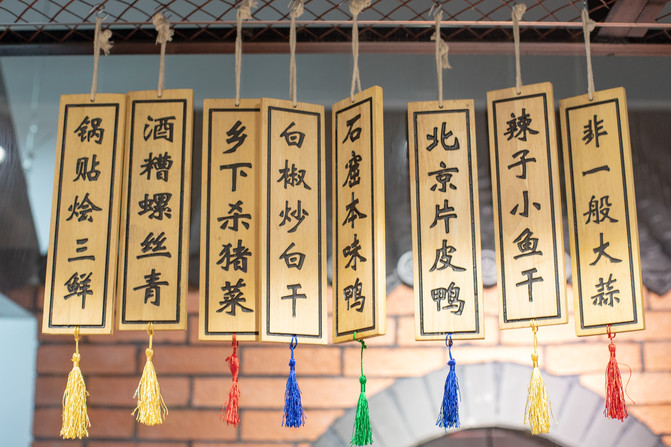 锅贴烩三鲜
酒糟螺丝青
乡下杀猪菜
白椒炒白干
石窟本味鸭
北京片皮鸭
辣子小鱼干
非一般大蒜